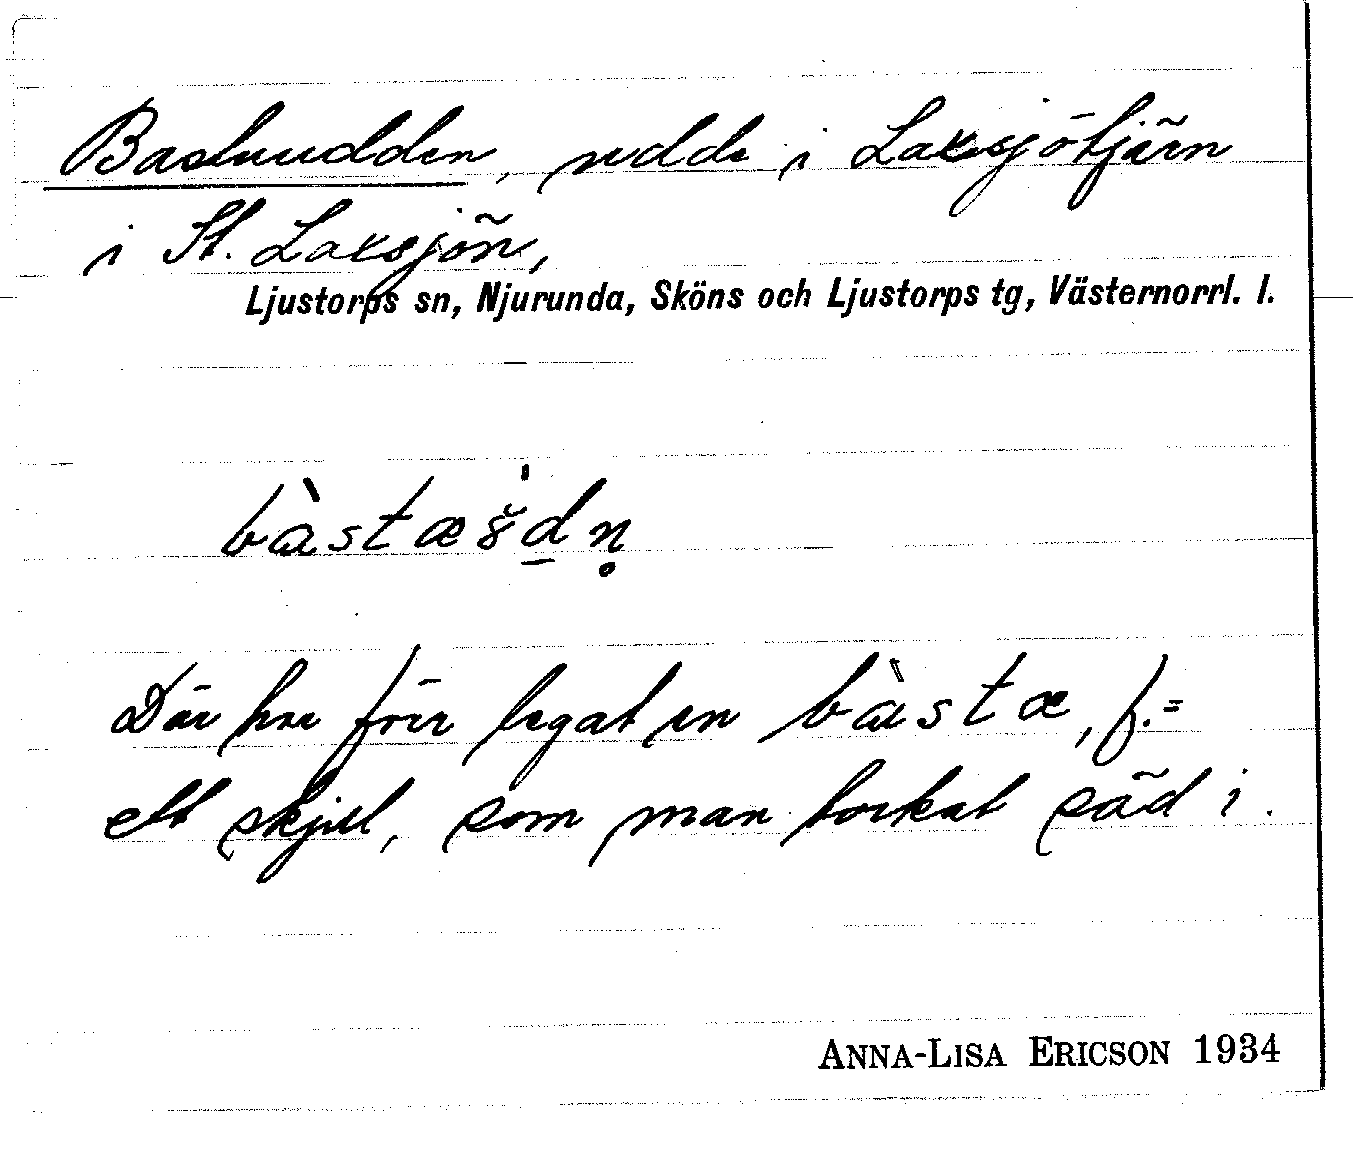 Bastuudden, udde i Laxsjötjärn
i St. Laxsjön,
Ljustorps sn, Njurunda, Sköns och Ljustorps tg, Västernorrl. l.
bàstæ̀šdn̥
Där har förr legat en bàstæ, f. =
ett skjul, som man torkat säd i.
ANNA-LISA ERICSON 1934